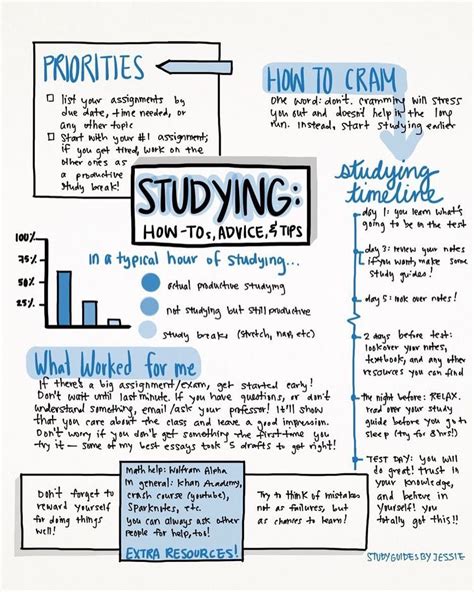 PRIORITIES
□ list your assignments by
due date, time needed, or
any other topic
□ Start with your #1 assignment;
if you get tired, work on the
other ones as
a productive
study break!
HOW TO CRAM
One word: don't. cramming will stress
you out and doesn't help in the long
run. Instead, start studying earlier
STUDYING:
HOW-TOs, ADVICE, & TIPS
studying
timeline
day 1: you learn what's
going to be on the test
day 3: review your notes
if you want, make some
study guides!
day 5: look over notes!
2 days before test:
look over your notes,
textbook, and any other
resources you can find
The night before: RELAX.
read over your study
guide before you go to
sleep (try for 8 hrs!)
TEST DAY: you will
do great! trust in
your knowledge,
and believe in
yourself! you
totally got this!!
in a typical hour of studying...
100%
75%
50%
25%
actual productive studying
not studying but still productive
study breaks (stretch, nap, etc)
What Worked for me
If there's a big assignment/exam, get started early!
Don't wait until last minute. If you have questions, or don't
understand something, email/ask your professor! It'll show
that you care about the class and leave a good impression.
Don't worry if you don't get something the first time you
try it — some of my best essays took 5 drafts to get right!
Don't forget to
reward yourself
for doing things
well!
Math help: Wolfram Alpha
in general: Khan Academy,
crash course (youtube),
Sparknotes, etc.
you can always ask other
people for help, too!
EXTRA RESOURCES!
Try to think of mistakes
not as failures, but
as chances to learn!
STUDYGUIDESBYJESSIE